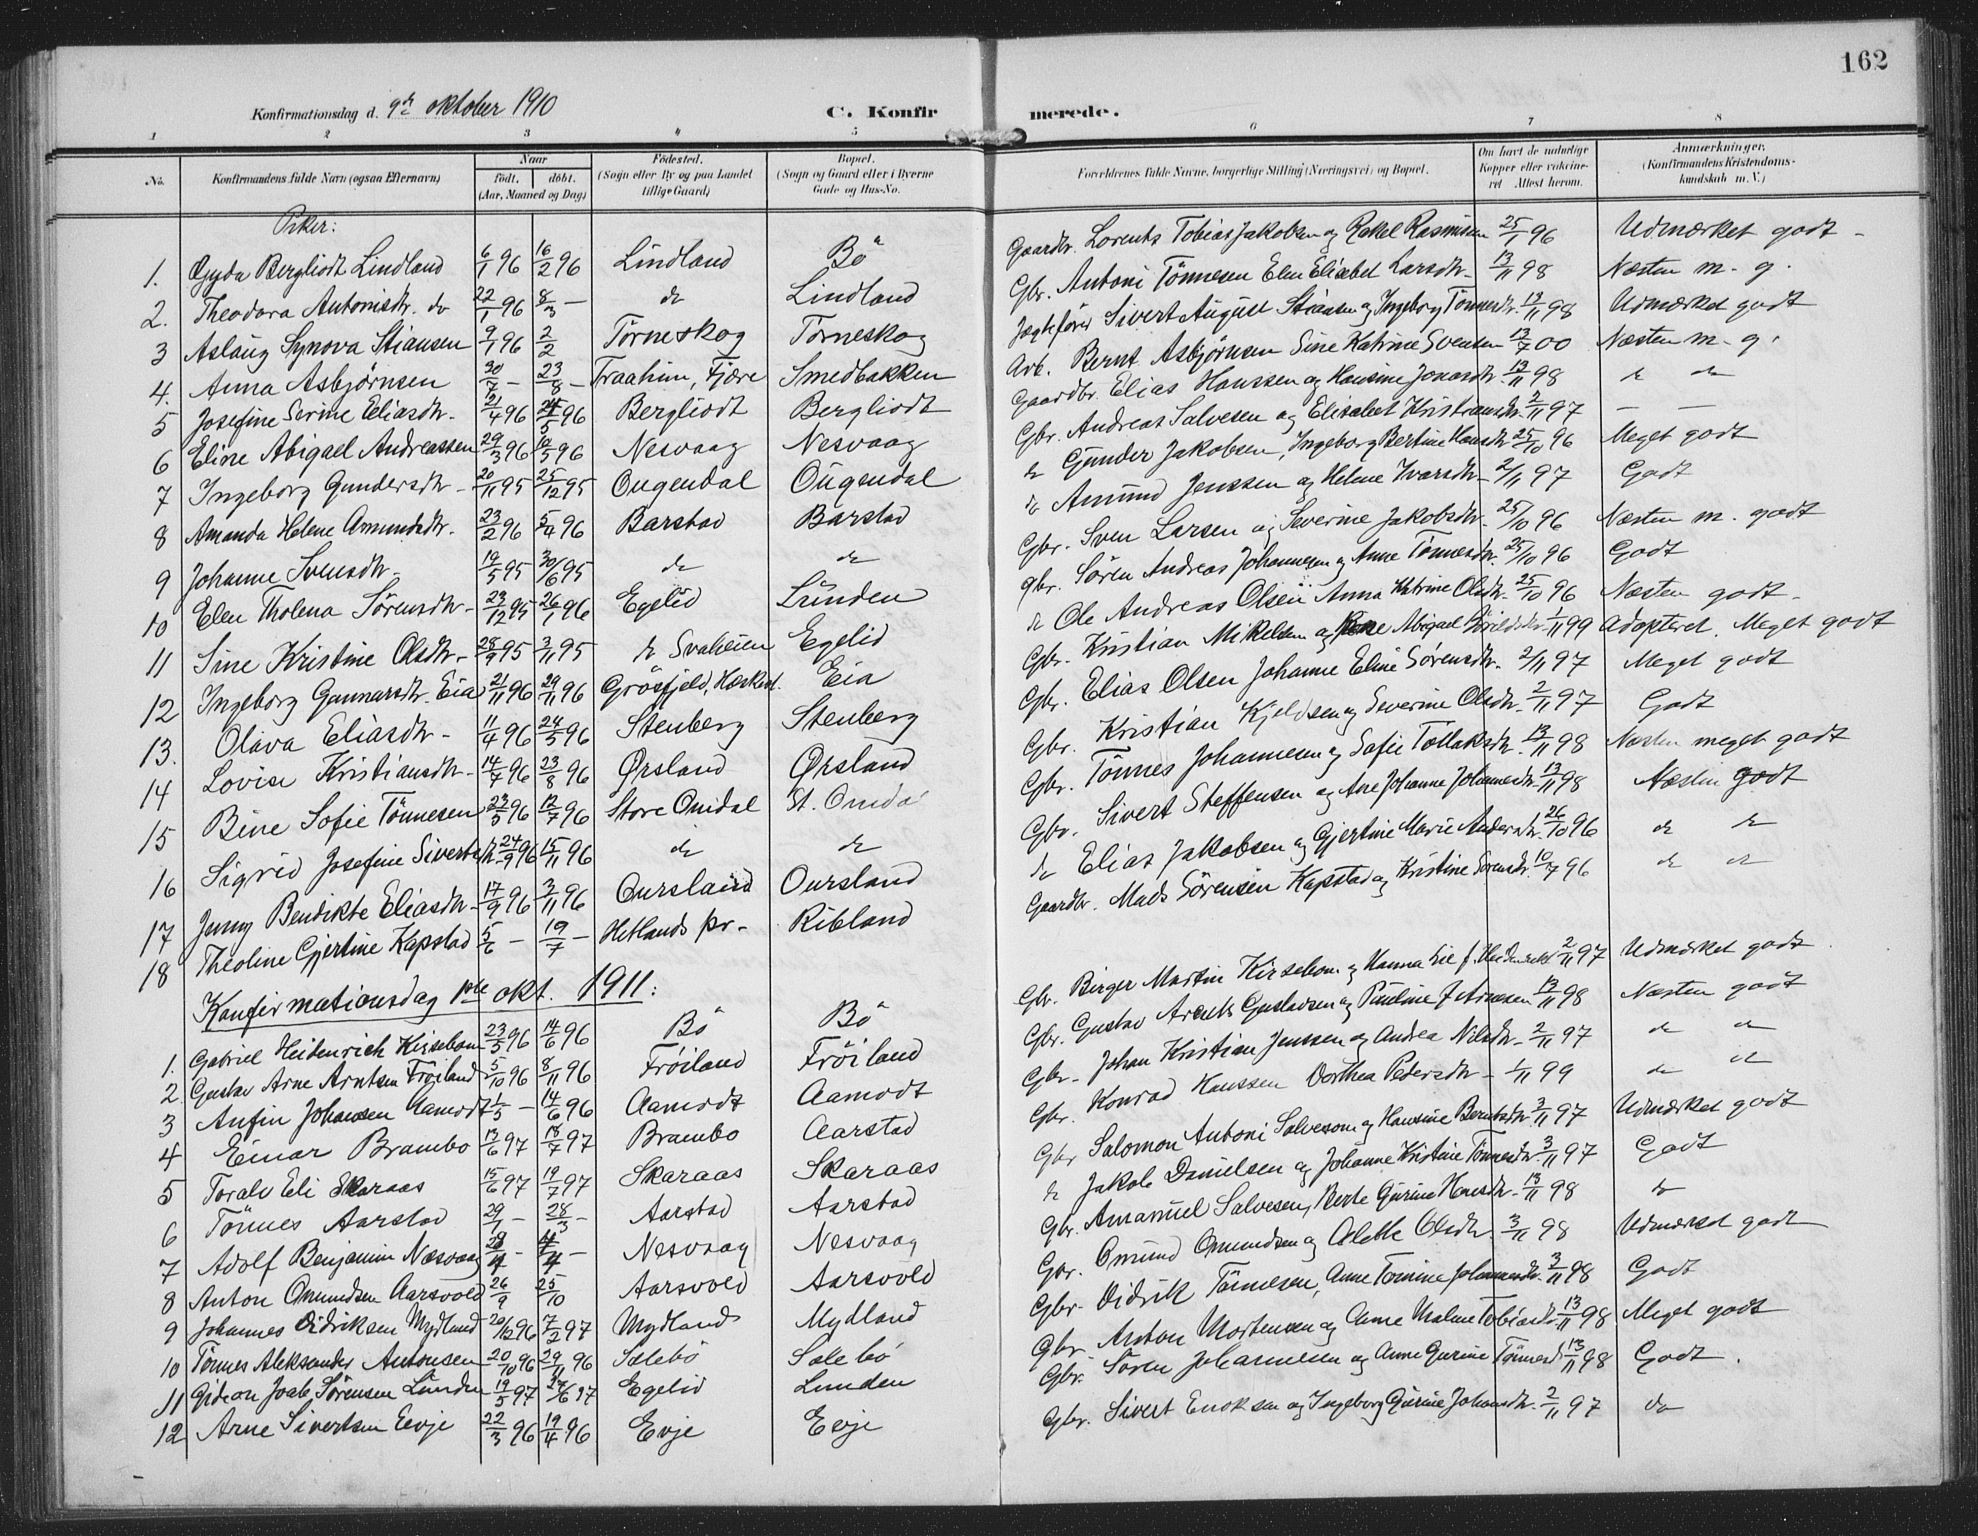 162
Konfirmationsdag d. 9de oktober 1910 C. Konfirmerede.
1 2 3 4 5 6 7 8
No. Konfirmandens fulde Navn (ogsaa Efternavn) Naar født. døbt. (Aar, Maaned og Dag) Fødested. (Sogn eller By og paa Landet tillige Gaard) Bopæl. (Sogn og Gaard eller i Byerne Gade og Hus-No. Forældrenes fulde Navne, borgerlige Stilling (Næringsvei) og Bopæl. Om havt de naturlige Kopper eller vaccineret Attest herom. Anmærkninger. (Konfirmandens Kristendomskundskab m. V.)
Piker:
1. Gyda Bergliodt Lindland 6/1 96 16/2 96 Lindland Bö Gaardbr. Lorents Tobias Jakobsen og Rakel Rasmusen 25/1 96 Udmærket godt -
2. Theodora Antonisdr. do 22/1 96 8/3 — do Lindland Gbr. Antoni Tönnesen Elen Elisabet Larsdtr. 13/11 98 Næsten m. g.
3 Aslaug Synova Stiansen 9/1 96 2/2 Törneskog Törneskog Jægtefører Sivert August Stiansen og Ingeborg Tönnesdr. 13/11 98 Udmærket godt
4. Anna Asbjørnsen 30/7 — 23/8 — Traahim, Fjære Smedbakken Arb. Bernt Asbjörnsen Sine Katrine Svensen 13/7 00 Næsten m. g.
5 Josefine Serine Eliasdtr. 21/4 96 25/5 96 Bergliodt Bergliodt Gaardbr. Elias Hanssen og Hansine Jonasdtr. 13/11 98 do do
6 Eline Abigael Andreassen 29/3 96 10/5 96 Nesvaag Nesvaag Gbr. Andreas Salvesen og Elisabet Kristensdr. 2/11 97 — —
7 Ingeborg Gundersdtr. 20/11 95 25/12 95 Ougendal Ougendal do Gunder Jakobsen, Ingeborg Bertine Hansdtr. 25/10 96 Meget godt
8 Amanda Helene Amundsdtr. 23/2 96 5/4 96 Barstad Barstad do Amund Jenssen og Helene Ivarsdtr. 2/11 97 Godt
9 Johanne Svensdtr. 19/5 95 30/6 95 do do Gbr. Sven Larsen og Severine Jakobsdtr. 25/10 96 Næsten m. godt
10 Elen Tholena Sörensdtr. 23/12 95 26/1 96 Egelid Lunden gbr. Sören Andreas Johannesen og Anne Tönnesdtr. 25/10 96 Godt
11 Sine Kristine Olsdtr. 28/9 95 3/11 95 do Svaheien Egelid do Ole Andreas Olsen Anna Katrine Olsdtr. 25/10 96 Næsten godt.
12 Ingeborg Gunnarsdtr. Eia 21/11 96 29/11 96 Grösfjeld, Hæskest. Eia Gbr. Kristian Mikelsen og Abigael 1/11 99 Adopteret. Meget godt
13. Olava Eliasdtr. 11/4 96 24/5 96 Stenberg Stenberg Gbr. Elias Olsen Johanne Eline Sörensdtr. 2/11 97 Meget godt
14 Lovise Kristiansdtr. 14/7 96 23/8 96 Ørsland Ørsland Gbr. Kristian Kjeldsen og Severine Olsdtr. 2/11 97 Godt
15 Bine Sofie Tönnesen 23/5 96 12/7 96 Store Omdal St. Omdal Gbr. Tönnes Johannesen og Sofie Tollaksdtr. 13/11 98 Næsten meget godt
16 Sigrid Josefine Sivertsdtr. 24/9 96 15/11 96 do do Gbr. Sivert Steffensen og Ane Johanne Johannesdtr. 13/11 98 Næsten godt
17 Jenny Bendikte Eliasdtr. 17/9 96 3/11 96 Oursland Oursland do Elias Jakobsen og Gjertine Marie Andersdtr. 26/10 96 do do
18 Theoline Gjertine Kapstad 5/6 — 19/7 — Hetlands pr. Ribland Gaardbr. Mads Sörensen Kapstad og Kristine Sörensdr. 10/7 96 do do
Konfirmationsdag 1ste okt. 1911:
1. Gabriel Heidenrich Kirsebom 23/5 96 14/6 96 Bö Bö Gbr. Birger Martin Kirsebom og Hanna Lie f. Heidenrich 2/11 97 Udmærket godt
2 Gustav Arne Arntsen Fröiland 5/10 96 8/11 96 Fröiland Fröiland Gbr. Gustav Arents Gustavsen og Pauline 13/11 98 Næsten godt
3 Anfin Johansen Aamodt 1/5 — 14/6 96 Aamodt Aamodt Gbr. Johan Kristian Jenssen og Andrea Nilsdtr. 2/11 97 do do
4 Einar Brambo 13/6 97 18/7 97 Brambo Aarstad Gbr. Konrad Hanssen Dorthea Pedersdtr. 1/11 99 do do
5 Toralv Eli Skaraas 15/6 97 19/7 97 Skaraas Skaraas Gbr Salomon Antoni Salvesen og Hansine Berntsdtr. 3/11 97 Udmærket godt
6 Tönnes Aarstad 29/1 — 28/3 — Aarstad Aarstad do Jakob Danielsen og Johanne Kristine Tönnesdtr. 3/11 97 Godt
7 Adolf Benjamin Næsvaag Nesvaag Nesvaag Gbr. Amanuel Salvesen, Berte Gurine Hansdtr. 13/11 98 do
8 Anton Omundsen Aarsvold 26/9 25/10 Aarsvold Aarsvold Gbr. Omund Omundsen og Aletta Olsdtr. 3/11 98 Udmærket godt
9 Johannes Didriksen Mydland 20/12 96 7/2 97 Mydland Mydland Gbr. Didrik Tönnesen, Anne Tomine Johannesdtr. 3/11 98 Godt
10 Tönnes Aleksander Antonsen 20/10 96 29/11 96 Solebö Solebö Gbr. Anton Mortensen og Anne Malene Tobiasdtr. 13/11 98 Meget godt
11 Gideon Joab Sörensen Lunden 19/5 97 27/6 97 Egelid Lunden Gbr. Sören Johannesen og Anne Gurine Tönnesd 13/11 98 Godt.
12 Arne Sivertsen Eevje 22/3 96 19/4 96 Evje Evje Gbr. Sivert Enoksen og Ingeborg Gurine Johansdtr. 2/11 97 do